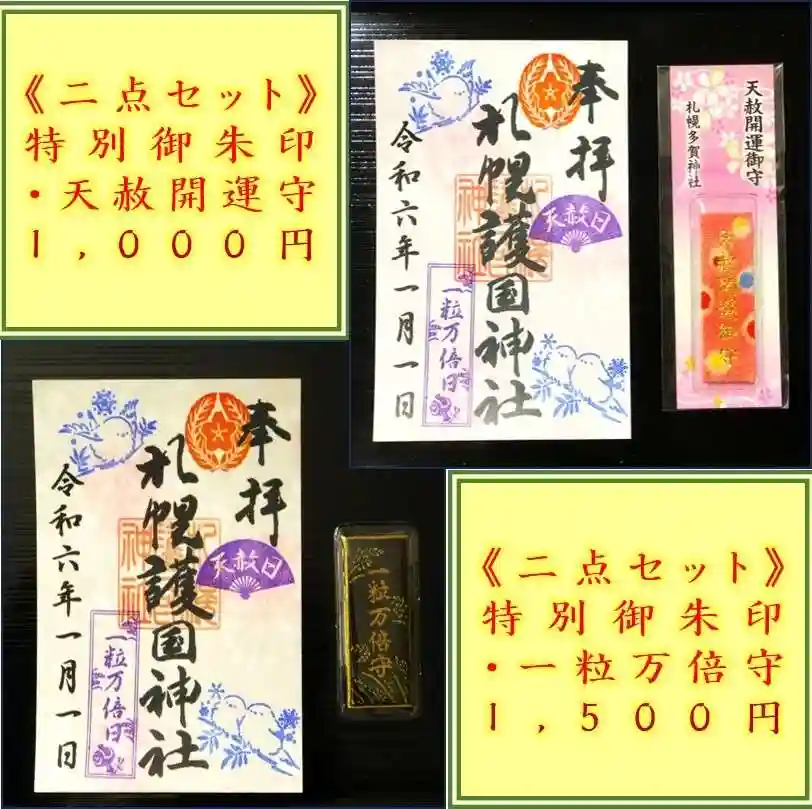 《二点セット》
特別御朱印
・天赦開運守
1,000円
奉拝
札幌護国神社
令和六年一月一日
天赦日
一粒万倍日
天赦開運御守
札幌多賀神社
奉拝
札幌護国神社
令和六年一月一日
天赦日
一粒万倍日
一粒万倍守
《二点セット》
特別御朱印
・一粒万倍守
1,500円